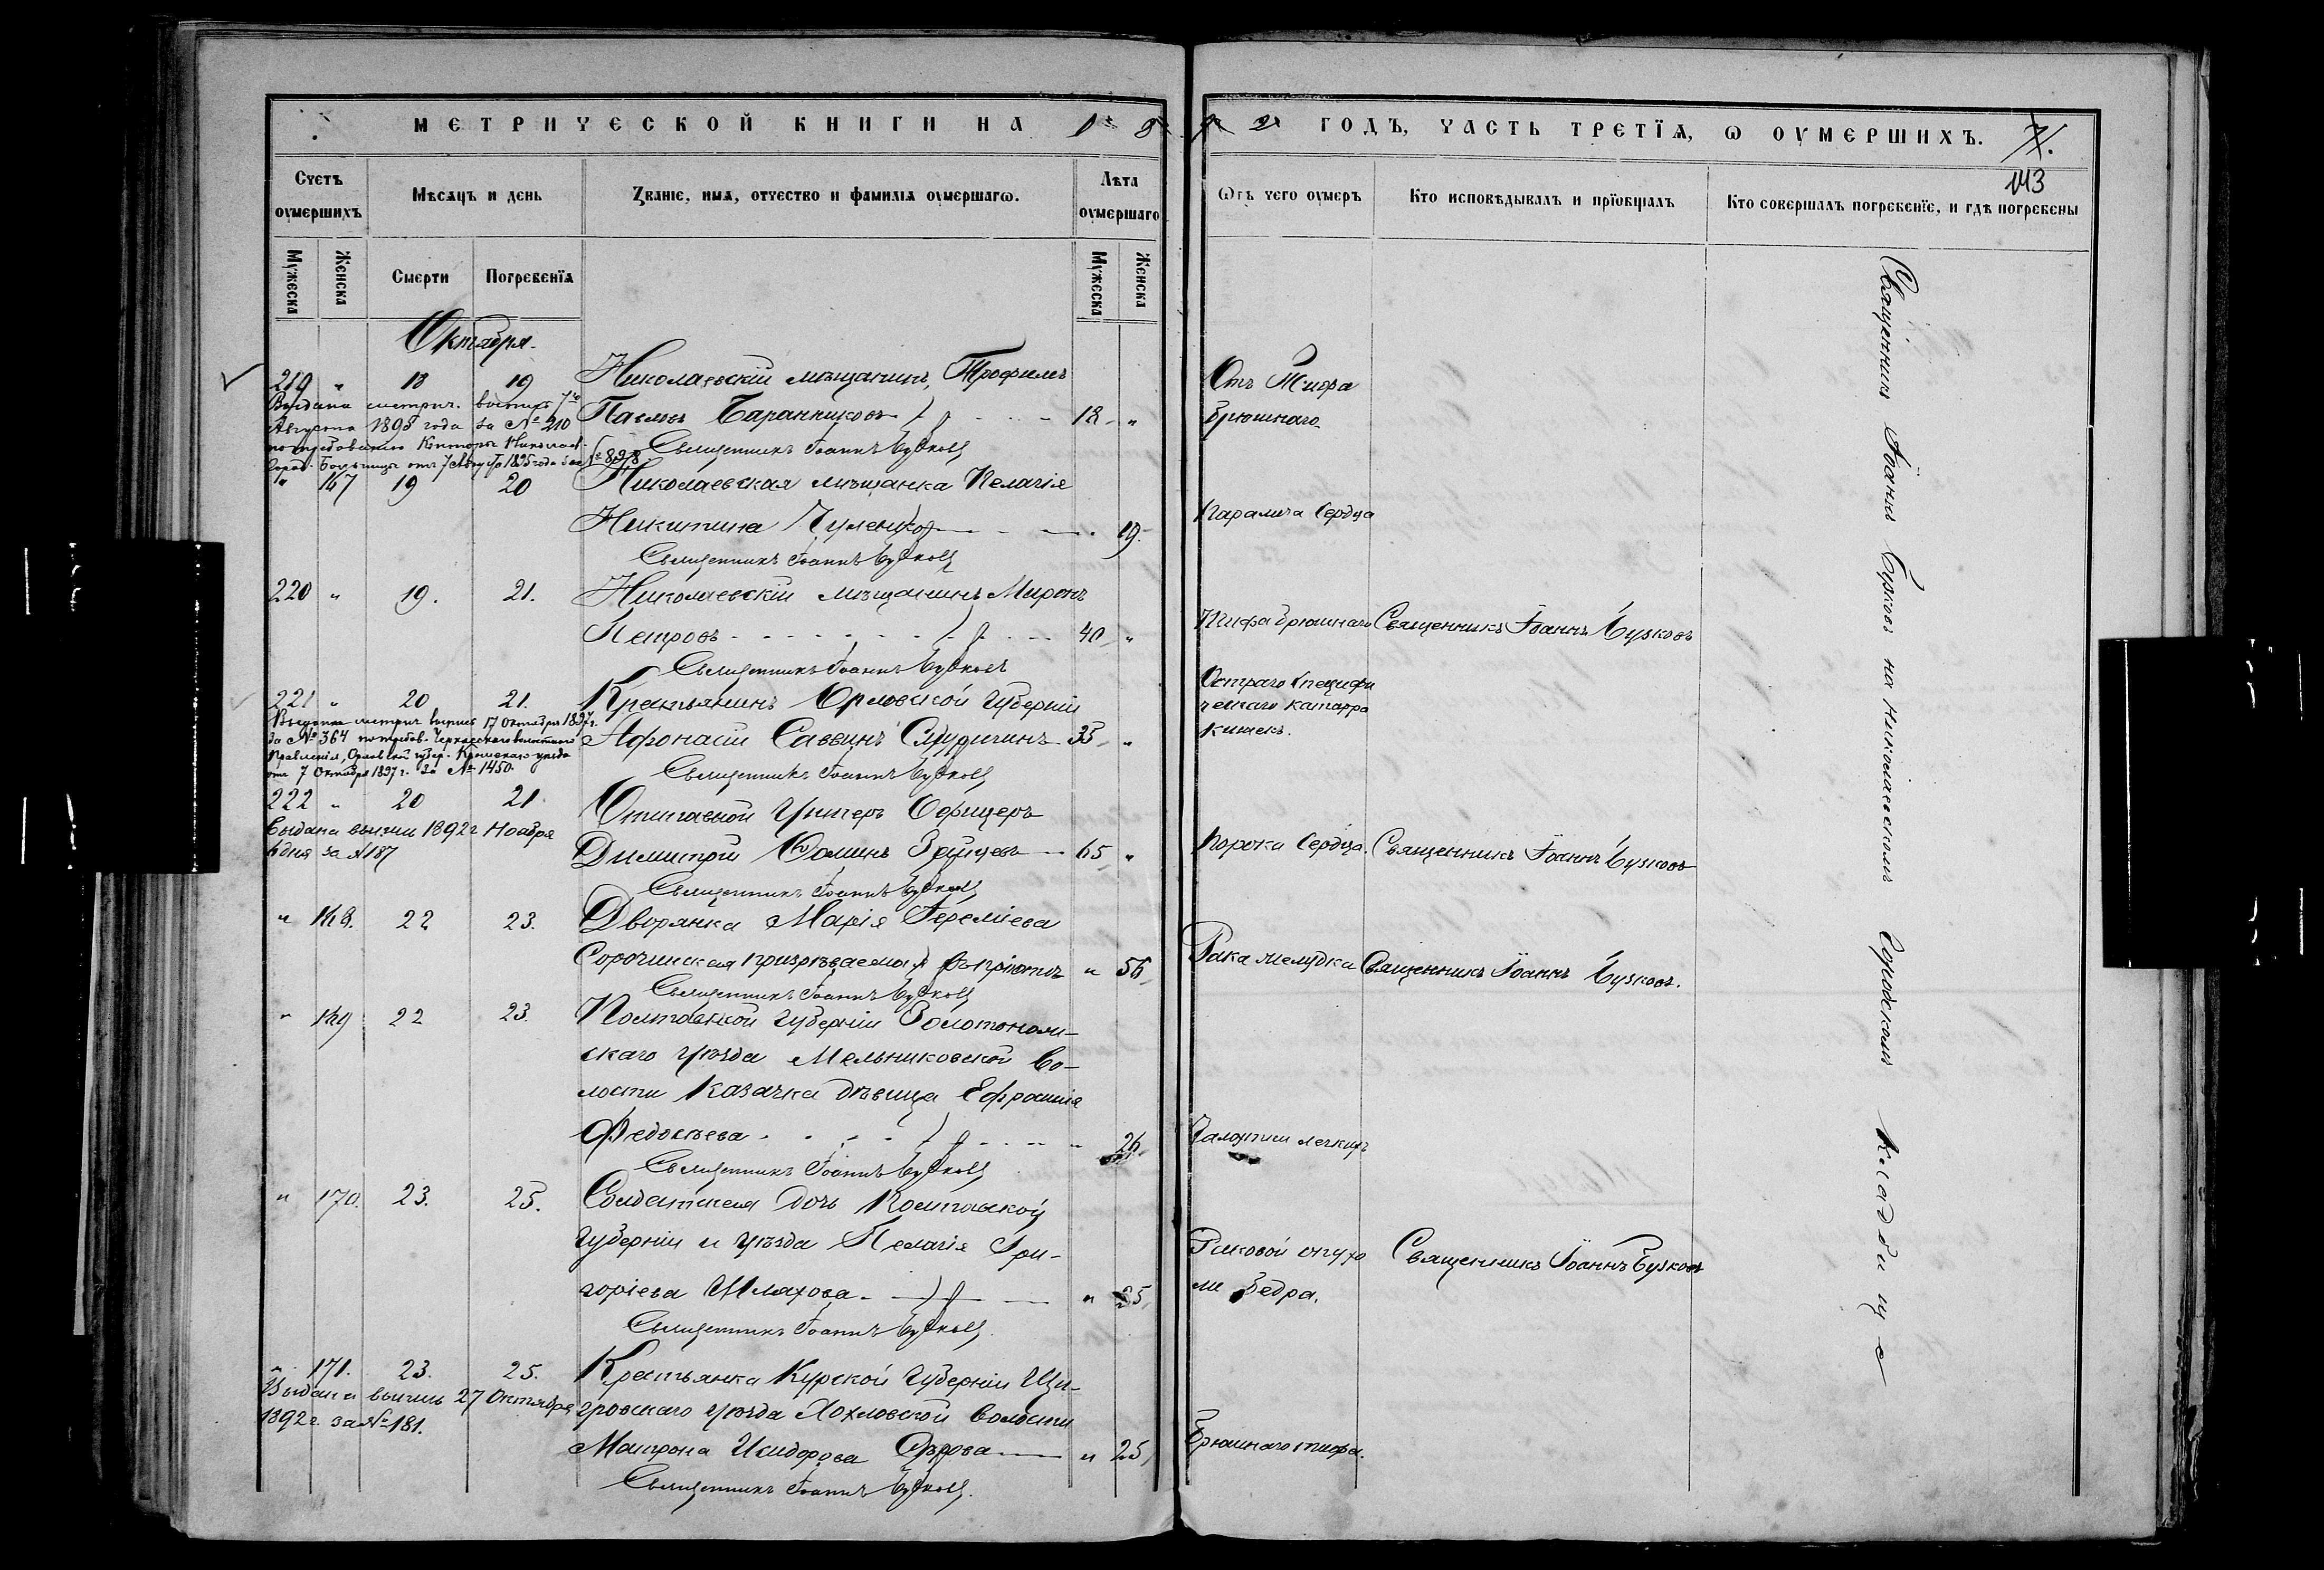 МЕТРИЧЕСКОЙ КНИГИ НА 1892 ГОДЪ, ЧАСТЬ ТРЕТІЯ, Ѡ ОУМЕРШИХЪ.
71.
143
Счетъ оумершихъ
Мѣсяцъ и день
Званіе, имя, отчество и фамилія оумершагѡ.
Лѣта оумершаго
Ѡтъ чего оумеръ
Кто исповѣдывалъ и прїобщалъ
Кто совершалъ погребенїе, и гдѣ погребены
Мужеска
Женска
Смерти
Погребенїя
Мужеска
Женска
Октября.
219 " 18 19 Николаевскій мѣщанинъ, Трофимъ
Павловъ Баранниковъ 18 "
Отъ Тифа
брюшнаго
Выдана метрич. выпись 7го
Августа 1895 года за № 210
по требованію Конторы Николаев.
Город. Больницы отъ 7 Августа 1895 года за № 898
Священникъ Іоаннъ Бузковъ
" 167 19 20 Николаевская мѣщанка Пелагія
Никитина 19.
Паралича Сердца
Священникъ Іоаннъ Бузковъ
220 " 19. 21. Николаевскій мѣщанинъ Миронъ
Петровъ 40 "
Тифа брюшнаго Священникъ Іоаннъ Бузковъ
Священникъ Іоаннъ Бузковъ
221 " 20 21. Крестьянинъ Орловской Губерніи
Афонасій Саввинъ 35 "
Остраго специфи
ческаго катарра
кишекъ.
Выдана метрич. выпись 17 Октября 1897 г.
за № 364 по требов. волостного
Правленія, Орловской губер. Кромскаго уѣзда
отъ 7 Октября 1897 г. за № 1450.
Священникъ Іоаннъ Бузковъ
222 " 20 21 Отставной Унтеръ Офицеръ
Димитрій Ѳоминъ Зайцевъ 65 "
Порока Сердца. Священникъ Іоаннъ Бузковъ
Выдана выпись 1892 г Ноября
6 дня за № 187
Священникъ Іоаннъ Бузковъ
" 168. 22 23. Дворянка Марія Іереміева
Сорочинская призрѣваемая въ пріютѣ " 56
Рака желудка Священникъ Іоаннъ Бузковъ.
Священникъ Іоаннъ Бузковъ
" 169 22 23. Полтавской Губерніи Золотоном-
скаго уѣзда Мельниковской Во-
лости Казачка дѣвица Ефросинія
Федосѣева 26
легкихъ
Священникъ Іоаннъ Бузковъ
" 170. 23. 25. Солдатская дочь Полтавской
Губерніи и уѣзда Пелагія Гри-
горіева Шляхова " 25
Раковой опухо
ли бедра.
Священникъ Іоаннъ Бузковъ
Священникъ Іоаннъ Бузковъ.
" 171. 23. 25. Крестьянка Курской Губерніи Щи-
гровскаго уѣзда Хохловской волости
Матрона Исидорова " 25
Брюшнаго тифа.
Выдана выпись 27 Октября
1892 г. за № 181.
Священникъ Іоаннъ Бузковъ.
Священникъ Іоаннъ Бузковъ на Николаевскомъ Городскомъ Кладбищѣ